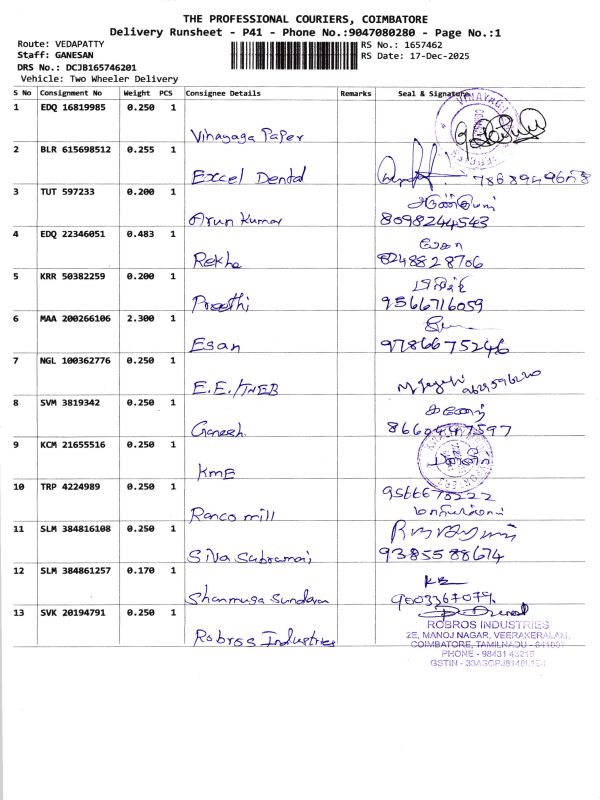 THE PROFESSIONAL COURIERS, COIMBATORE
Delivery Runsheet - P41 - Phone No.:9047080280 - Page No.:1
Route: VEDAPATTY
RS No.: 1657462
Staff: GANESAN
RS Date: 17-Dec-2025
DRS No.: DCJB165746201
Vehicle: Two Wheeler Delivery
S No Consignment No Weight PCS Consignee Details Remarks Seal & Signature
1 EDQ 16819985 0.250 1
Vinayaga Paper
2 BLR 615698512 0.255 1
Excel Dental
3 TUT 597233 0.200 1
Arun Kumar 8098244543
4 EDQ 22346051 0.483 1
Rekha 8248828706
5 KRR 50382259 0.200 1
Preethi 9566716059
6 MAA 200266106 2.300 1
Esan 9786675246
7 NGL 100362776 0.250 1
E.E./TNEB
8 SVM 3819342 0.250 1
Ganesh
9 KCM 21655516 0.250 1
KmE
10 TRP 4224989 0.250 1
Ranco mill
11 SLM 384816108 0.250 1
Siva Subramani 9385588674
12 SLM 384861257 0.170 1
Shanmuga Sundaram
13 SVK 20194791 0.250 1
Robros Industries
ROBROS INDUSTRIES
2E, MANOJ NAGAR, VEERAKERALAM,
COIMBATORE, TAMILNADU - 641007
PHONE - 98431 43215